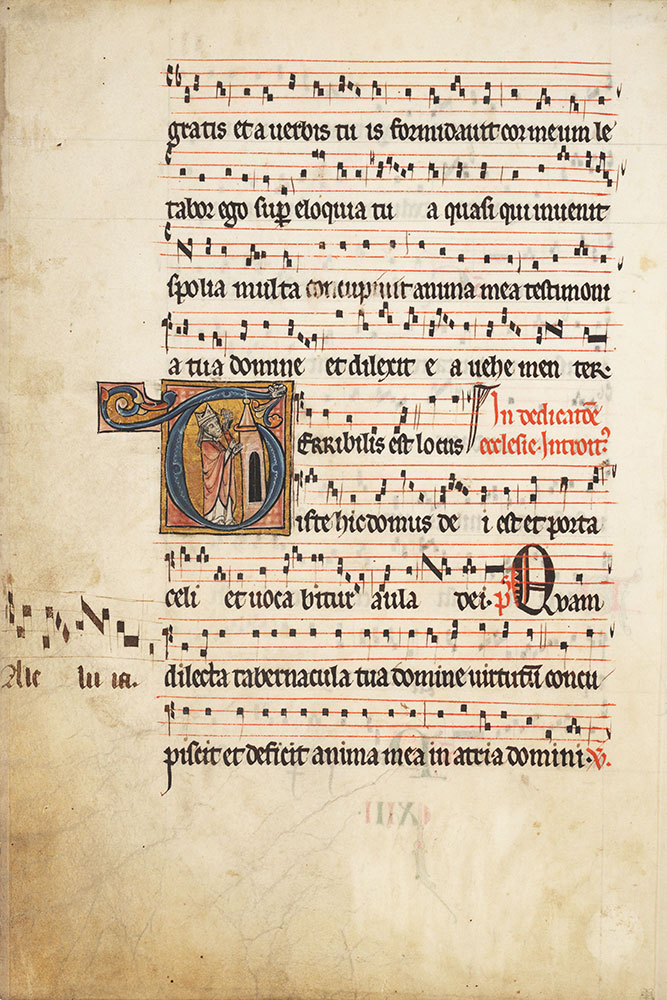 gratis et a uerbis tu is formidauit cor meum le
tabor ego sup eloquia tu a quasi qui inuenit
spolia multa concupiuit anima mea testimoni
a tua domine et dilexit e a uehe men ter
TERRIBILIS est locus In dedicatōe
ecclesie. Introit᷒
iste hic domus de i est et porta
celi et uoca bitur aula dei. p Quam
Ale lu ia.
dilecta tabernacula tua domine uirtutū concu
piscit et deficit anima mea in atria domini. V.
CXIII